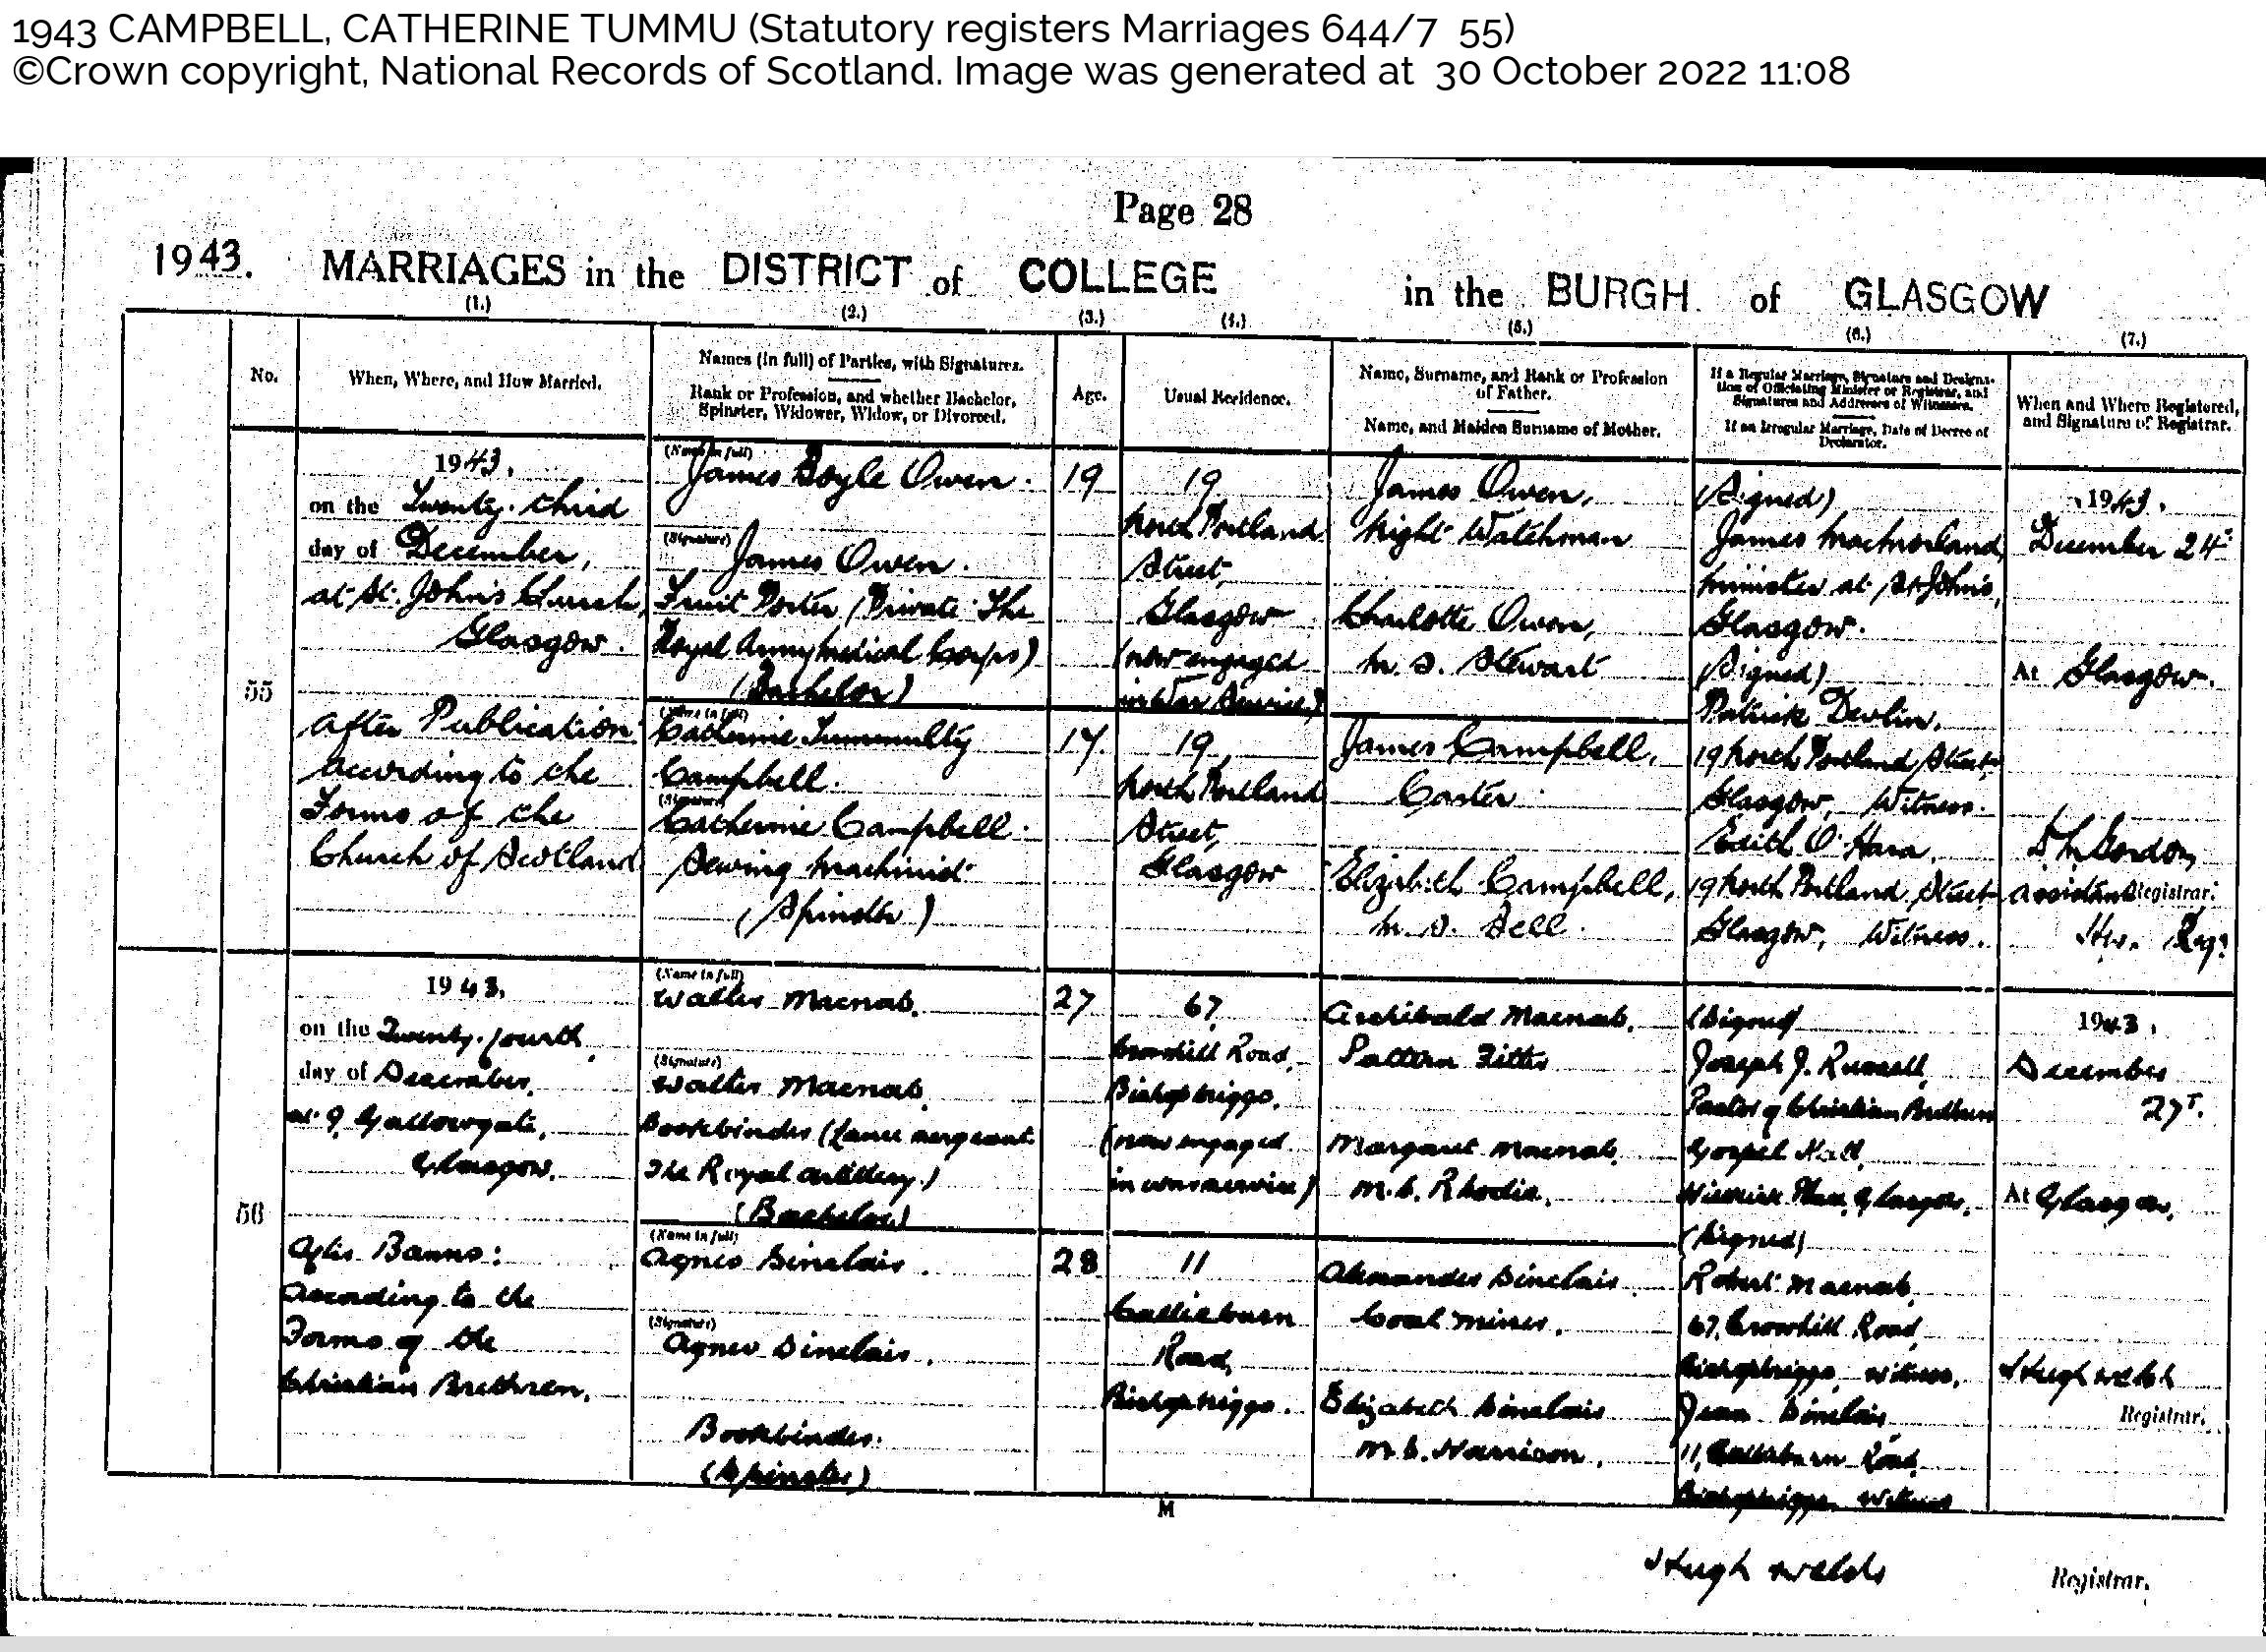 1943 CAMPBELL, CATHERINE TUMMU (Statutory registers Marriages 644/7 55)
©Crown copyright, National Records of Scotland. Image was generated at 30 October 2022 11:08
Page 28
1943. MARRIAGES in the DISTRICT of COLLEGE in the BURGH of GLASGOW
(1.) (2.) (3.) (4.) (5.) (6.) (7.)
No.
When, Where, and How Married.
Names (in full) of Parties, with Signatures.
Rank or Profession, and whether Bachelor,
Spinster, Widower, Widow, or Divorced.
Age.
Usual Residence.
Name, Surname, and Rank or Profession
of Father.
Name, and Maiden Surname of Mother.
If a Regular Marriage, Signature and Designa-
tion of Officiating Minister or Registrar, and
Signatures and Addresses of Witnesses.
If an Irregular Marriage, Date of Decree of
Declarator.
When and Where Registered,
and Signature of Registrar.
55
1943.
on the Twenty-third
day of December,
at St. John's Church,
Glasgow.
After Publication
according to the
Forms of the
Church of Scotland
(Name in full)
James Boyle Owen.
(Signature)
James Owen.
Fruit Porter (Private The
Royal Army Medical Corps)
(Bachelor)
(Name in full)
Catherine Tummulty
Campbell.
(Signature)
Catherine Campbell.
Sewing Machinist
(Spinster)
19
17.
19
North Portland
Street,
Glasgow
(now engaged
in War Service)
19
North Portland
Street,
Glasgow
James Owen,
Night Watchman
Charlotte Owen,
m.s. Stewart
James Campbell,
Carter
Elizabeth Campbell,
m.s. Bell.
(Signed)
James
Minister at St. John's,
Glasgow.
(Signed)
Patrick Devlin,
19 North Portland Street
Glasgow, Witness.
Edith O'Hara,
19 North Portland Street
Glasgow, Witness.
1943.
December 24
At Glasgow.
Gordon,
Assistant Registrar.
56
1943.
on the Twenty-fourth
day of December,
at 9, Gallowgate,
Glasgow.
After Banns:
According to the
Forms of the
Christian Brethren.
(Name in full)
Walter Macnab.
(Signature)
Walter Macnab.
Bookbinder (Lance Sergeant
The Royal Artillery)
(Bachelor)
(Name in full)
Agnes Sinclair.
(Signature)
Agnes Sinclair.
Bookbinder.
(Spinster)
27
28
67,
Crowhill Road,
Bishopbriggs.
(now engaged
in war service)
11
Callieburn
Road,
Bishopbriggs.
Archibald Macnab,
Pattern Fitter
Margaret Macnab,
m.s. Rhodie.
Alexander Sinclair
Coal Miner.
Elizabeth Sinclair
m.s. Harrison.
(Signed)
Joseph J. Russell,
Pastor of Christian Brethren
Gospel Hall,
Glasgow.
(Signed)
Robert Macnab,
67, Crowhill Road
Bishopbriggs, witness.
Jean Sinclair,
11, Callieburn Road,
Bishopbriggs witness
1943.
December
27
At Glasgow.
Hugh Welsh
Registrar.
M
Hugh Welsh Registrar.